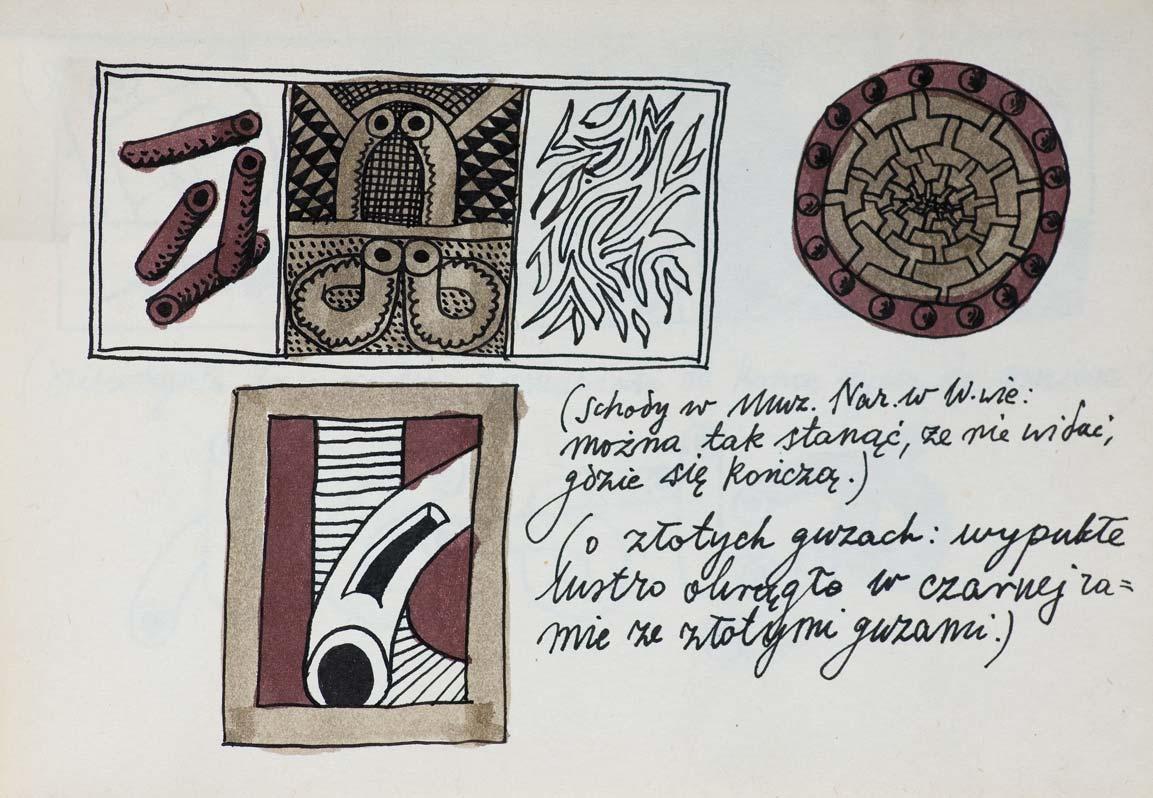 (Schody w Muz. Nar. w W.wie:
można tak stanąć, że nie widać,
gdzie się kończą.)
(o złotych guzach: wypukłe
lustro okrągłe w czarnej ra=
mie ze złotymi guzami.)